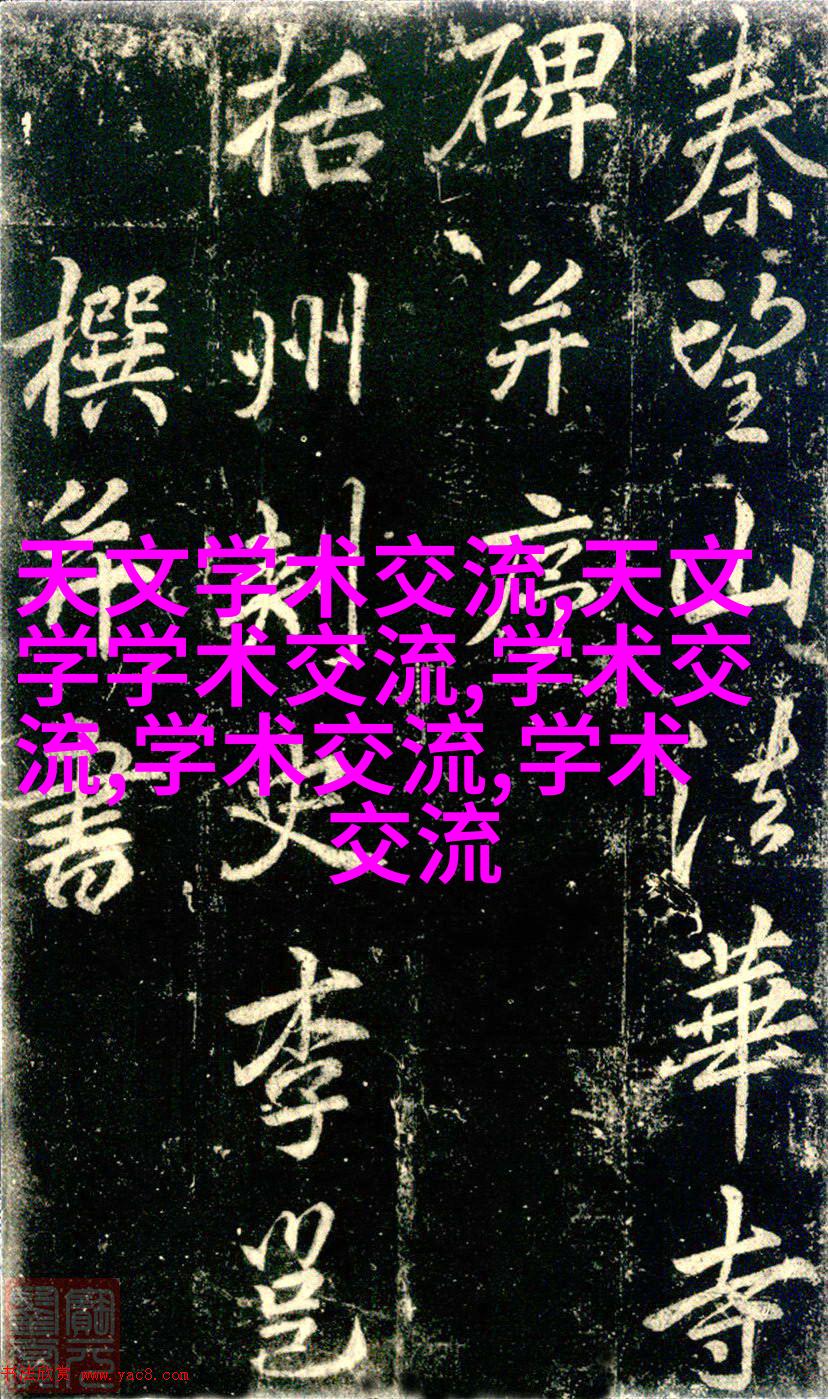 秦望山法華寺
碑并序
括州刺史李邕
撰并書
天文学术交流,天文
学学术交流,学术交
流,学术交流,学术
交流
书法欣赏 www.yac8.com